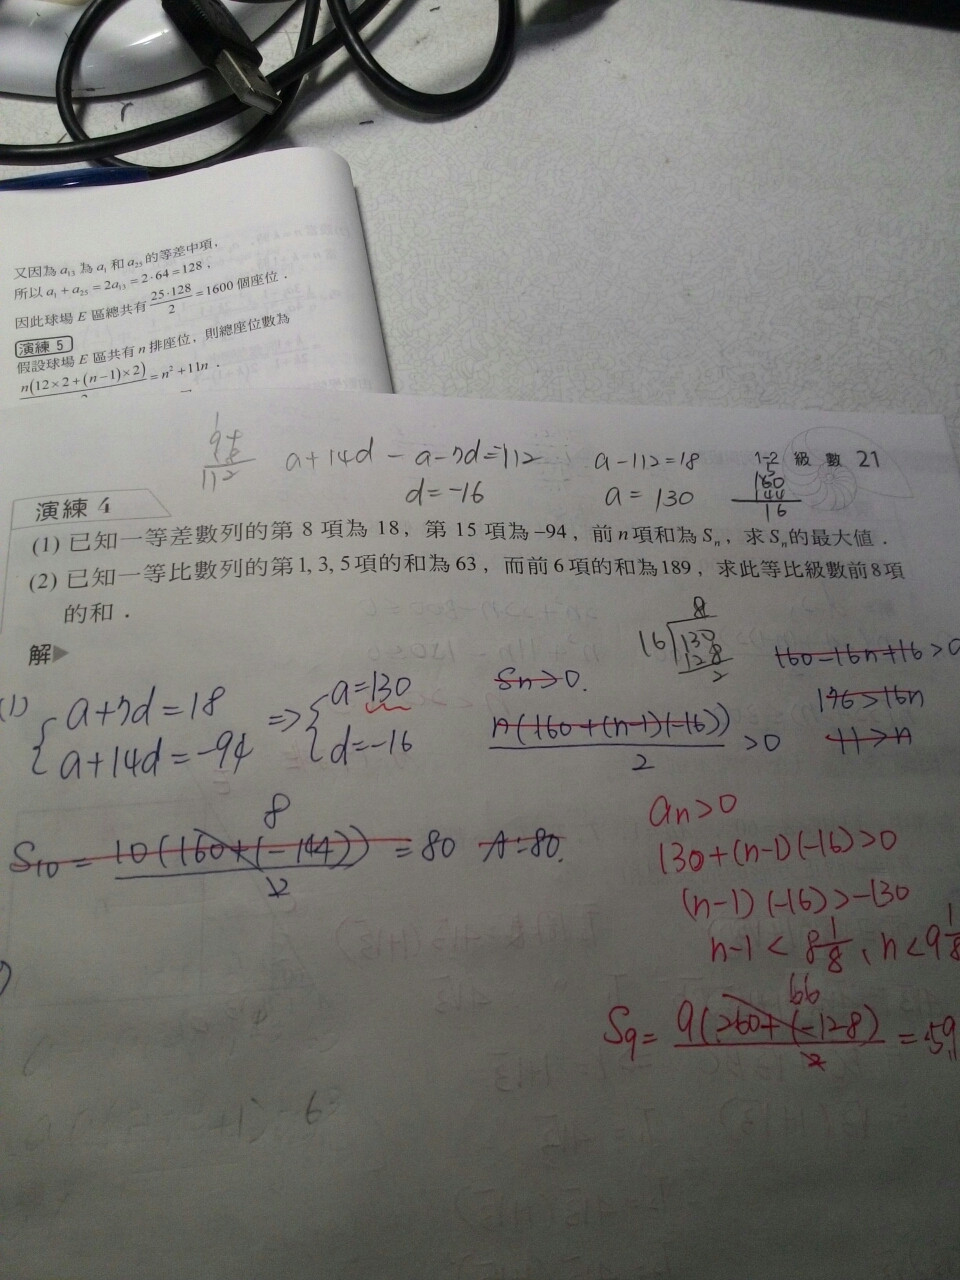 又因為 a₁₃ 為 a₁ 和 a₂₅ 的等差中項，
所以 a₁ + a₂₅ = 2a₁₃ = 2·64 = 128，
因此球場 E 區總共有 25·128/2 = 1600 個座位．
演練 5
假設球場 E 區共有 n 排座位，則總座位數為
n(12×2+(n−1)×2)/2 = n² + 11n．
112
a+14d − a−7d = −112
a−112=18
d=−16
a = 130
160
144
16
1-2 級數 21
演練 4
(1) 已知一等差數列的第 8 項為 18，第 15 項為 −94，前 n 項和為 Sₙ，求 Sₙ的最大值．
(2) 已知一等比數列的第1, 3, 5項的和為 63，而前 6 項的和為189，求此等比級數前8項
的和．
解▶
8
16 130
128
2
160−16n+16>0
(1) a+7d=18 ⇒ a=130
a+14d=−94 d=−16
Sn>0.
176>16n
n(160+(n−1)(−16))/2 >0
11>n
8
S₁₀ = 10(160+(−144))/2 = 80 A:80.
an>0
130+(n−1)(−16)>0
(n−1)(−16)>−130
n−1 < 8 1/8, n<9 1/8
66
S₉= 9(260+(−128)/2 = 59